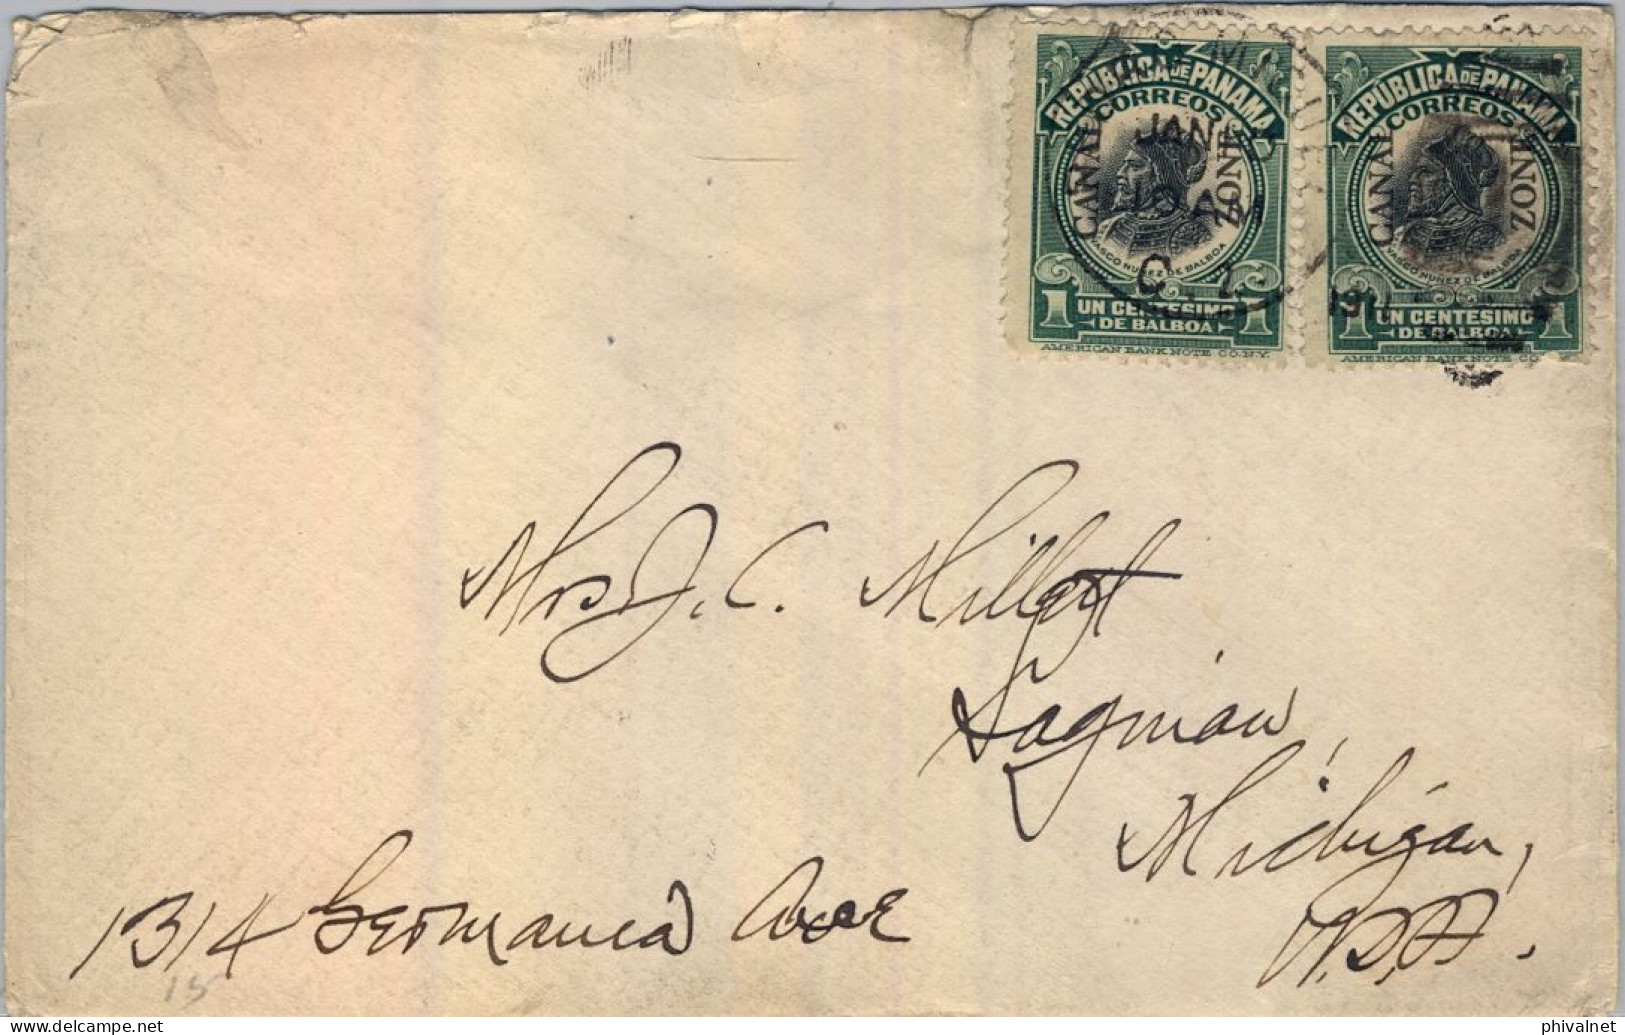 REPUBLICA DE PANAMA
CORREOS
CANAL ZONE
VASCO NUÑEZ DE BALBOA
1 UN CENTESIMO 1
DE BALBOA
AMERICAN BANK NOTE CO. N.Y.
REPUBLICA DE PANAMA
CORREOS
CANAL ZONE
VASCO NUÑEZ DE BALBOA
1 UN CENTESIMO 1
DE BALBOA
AMERICAN BANK NOTE CO
JAN
C. Z.
Mrs J. C. Millert
Saginaw,
Michigan,
U.S.A.
1314 Germania Ave
15
phivalnet